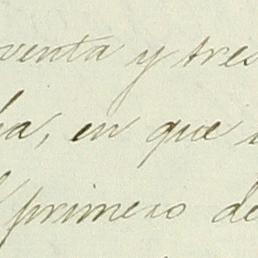 venta y tres
a, en que
primero de